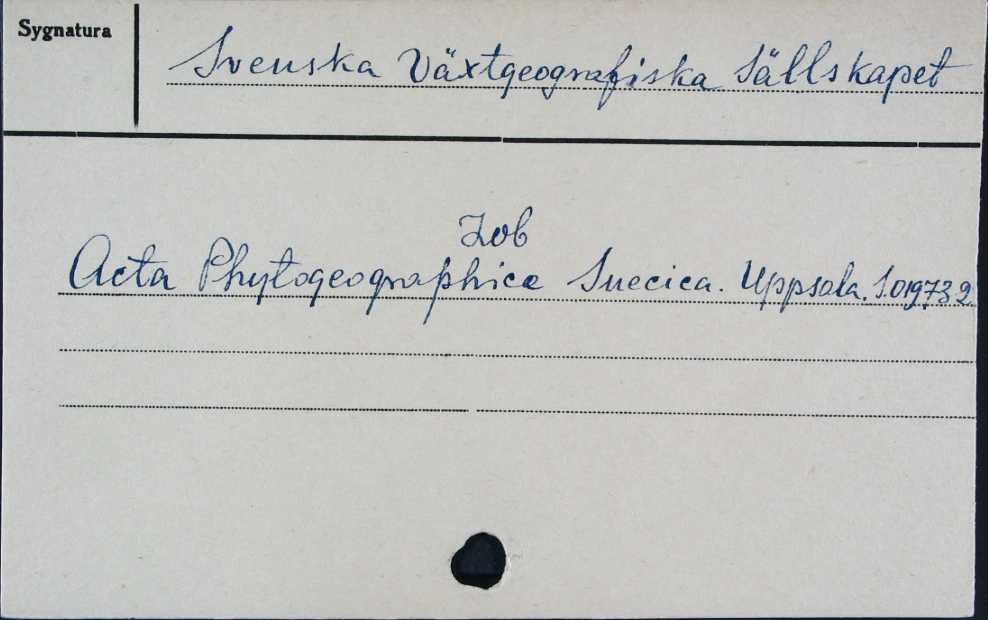 Sygnatura
Svenska Växtgeografiska Sällskapet
Zob
Acta Phytogeographica Suecica. Uppsala. S.019732